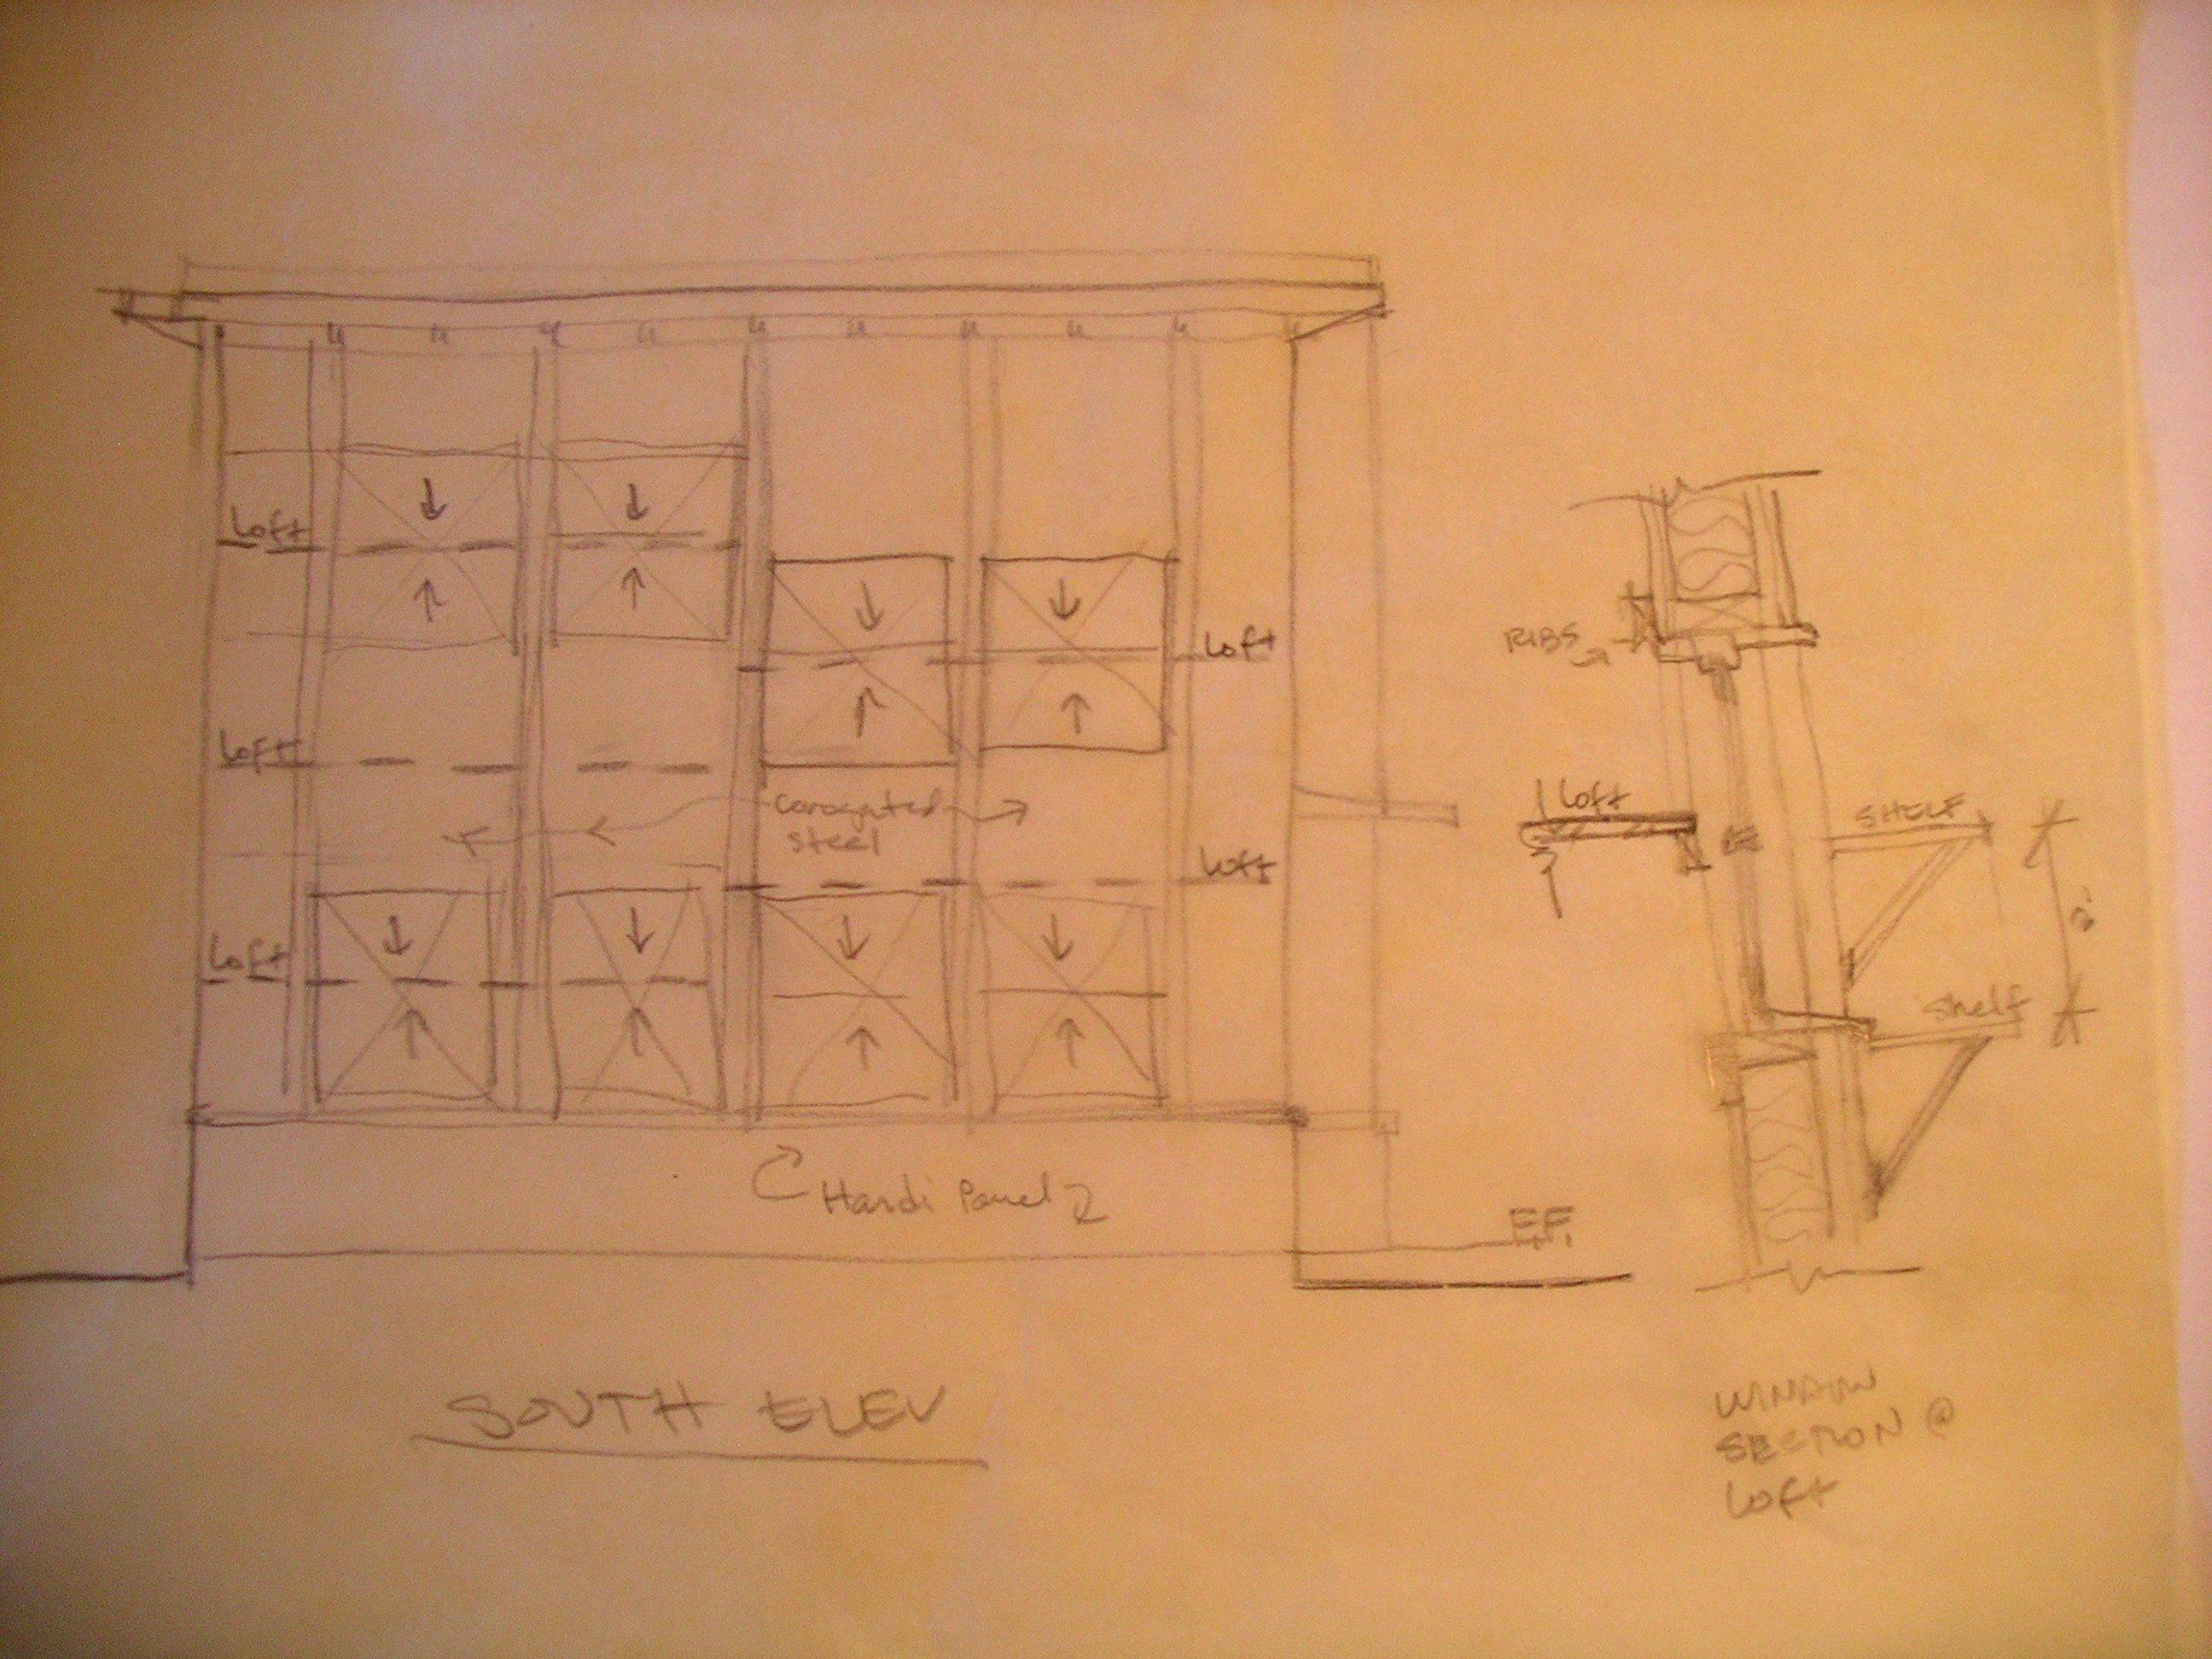 Loft
Loft
Loft
Loft
Loft
corrugated
steel
Hardi Panel
F.F.
SOUTH ELEV
RIBS
Loft
SHELF
Shelf
WINDOW
SECTION @
Loft